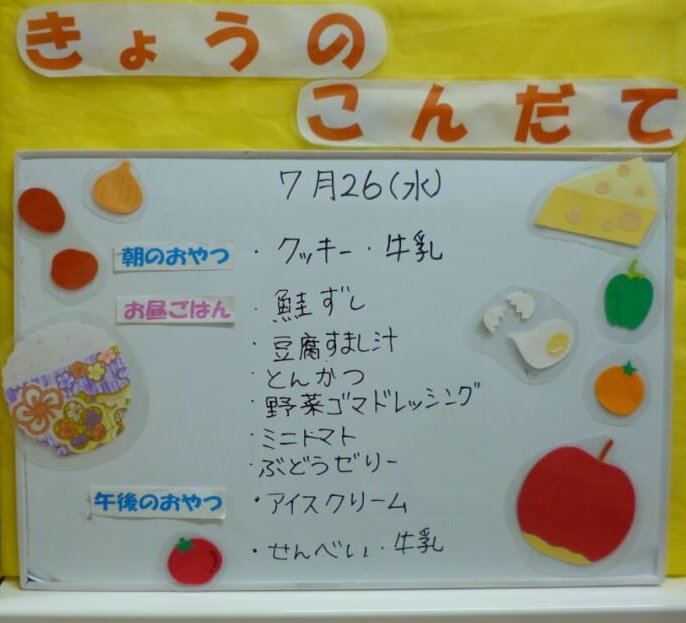 きょうの
こんだて
7月26(水)
朝のおやつ ・クッキー・牛乳
お昼ごはん ・鮭ずし
・豆腐すまし汁
・とんかつ
・野菜ゴマドレッシング
・ミニトマト
・ぶどうゼリー
午後のおやつ ・アイスクリーム
・せんべい・牛乳